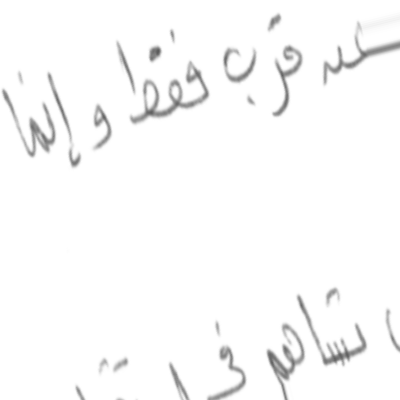 عن قرب فقط وإنما
تساهم في